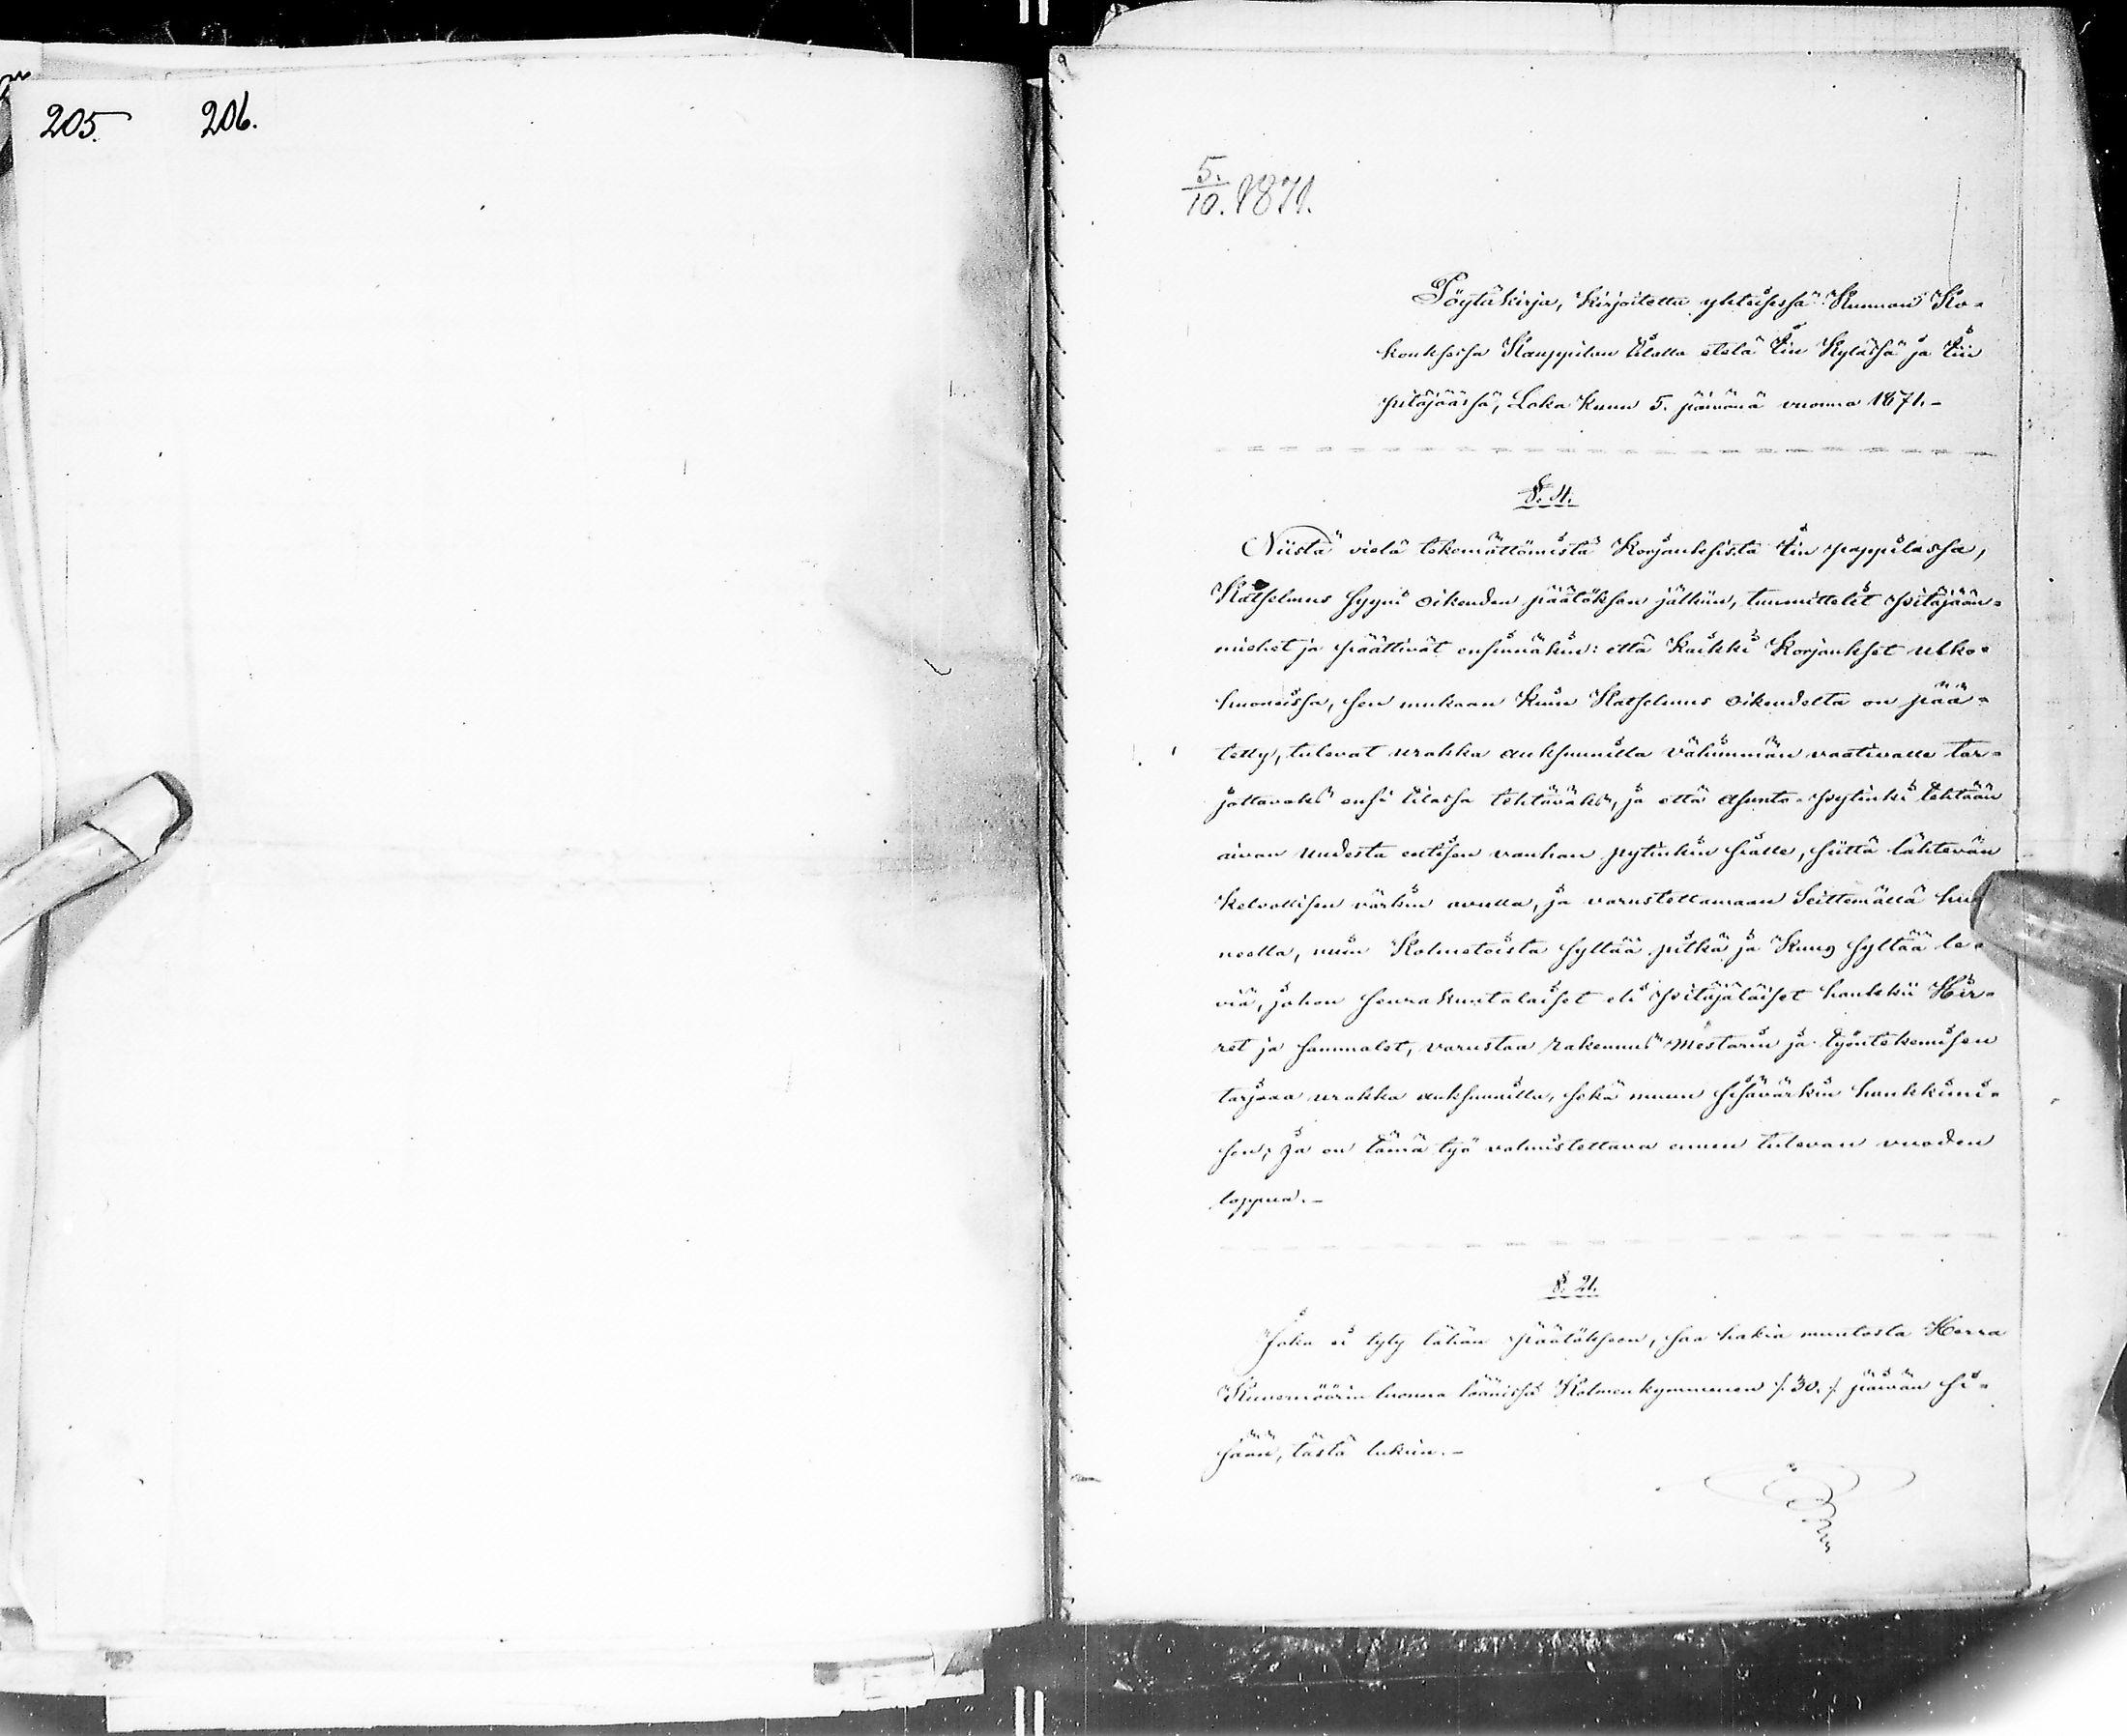 205. 206.
5./10. 1871.
Pöytäkirja, Kirjoitettu yhteisessä Kunnan Ko-
kouksessa Kauppilan tilalla etelä Iin Kylässä ja Iin
pitäjäässä, Loka Kuun 5. päivänä vuonna 1871.-
§. 1.
Niistä vielä tekemättömistä Korjauksista Iin pappilassa,
Katselmus syyni oikeuden päätöksen jälkiin, tuumittelit pitäjään-
miehet ja päättivät ensinnäkin: että Kaikki Korjaukset ulko-
huoneissa, sen mukaan Kuin Katselmus oikeudelta on pää-
tetty, tulevat urakka auksuunilla vähimmän vaativalle tar-
jottavaksi ensi tilassa tehtäväksi, ja että Asunto-pytinki tehtään
aivan uudesta entisen vanhan pytinkin sialle, siittä lähtevän
kelvollisen värkin avulla, ja varustettamaan Seittemällä huo
neella, niin Kolmetoista syltää pitkä ja Kuus syltää le-
viä, johon seurakuntalaiset eli pitäjäläiset hankkii Hir-
ret ja sammalet, varustaa rakennus Mestarin ja työntekemisen
tarjoaa urakka auksuunilla, sekä muun sisävärkin hankkimi-
sen; ja on tämä työ valmistettava ennen tulevan vuoden
loppua.-
§. 2.
Joka ei tyty tähän päätökseen, saa hakia muutosta Herra
Kuvernöörin luonna läänissä Kolmenkymmenen /: 30. :/ päivän si-
sään, tästä lukiin.-